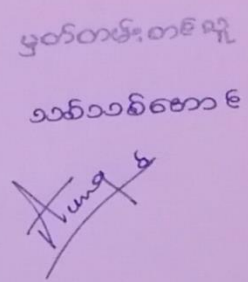 မှတ်တမ်းတင်သူ
သစ်သစ်အောင်
Aung